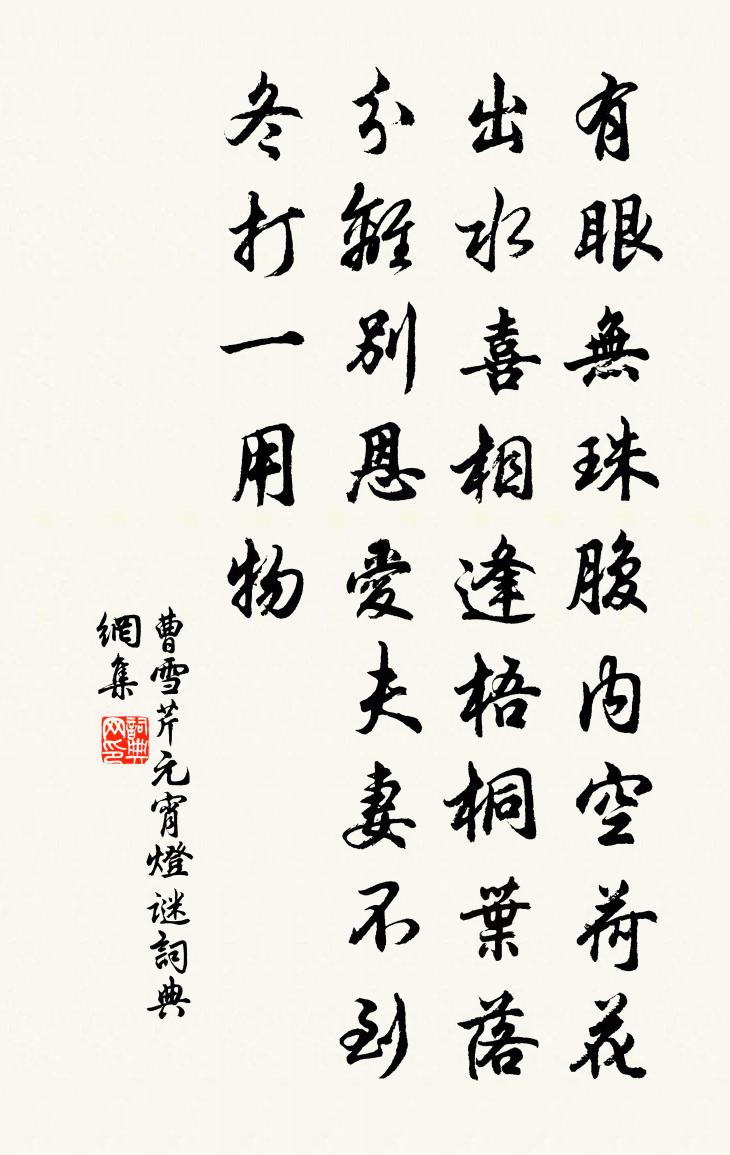 有眼無珠腹内空荷花
出水喜相逢梧桐葉落
分離別恩愛夫妻不到
冬打一用物
曹雪芹元宵燈謎詞典
網集
詞典
网印